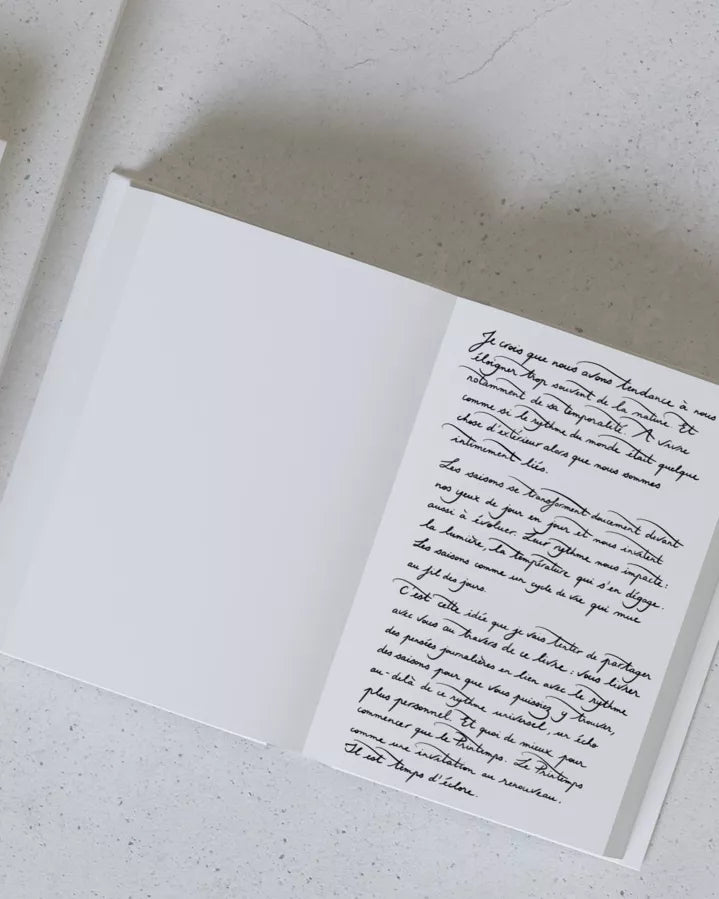 Je crois que nous avons tendance à nous
éloigner trop souvent de la nature. Et
notamment de sa temporalité. A vivre
comme si le rythme du monde était quelque
chose d'extérieur alors que nous sommes
intimement liés.
Les saisons se transforment doucement devant
nos yeux de jour en jour et nous invitent
aussi à évoluer. Leur rythme nous impacte :
la lumière, la température qui s'en dégage.
Les saisons comme un cycle de vie qui mue
au fil des jours.
C'est cette idée que je vais tenter de partager
avec vous au travers de ce livre : vous livrer
des pensées journalières en lien avec le rythme
des saisons pour que vous puissiez y trouver,
au-delà de ce rythme universel, un écho
plus personnel. Et quoi de mieux pour
commencer que le Printemps. Le Printemps
comme une invitation au renouveau.
Il est temps d'éclore.